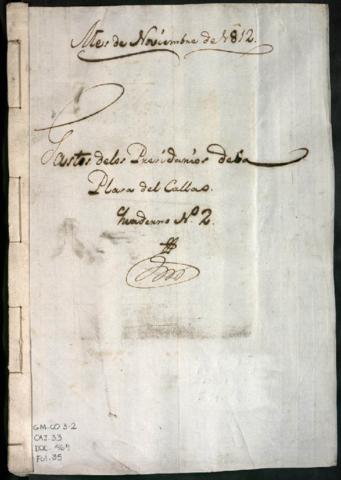 Mes de Noviembre de 1812.
Gastos delos Presidarios dela
Plasa del Callao.
Quaderno N.º 2.
GM-CO 3-2
CAJ. 33
DOC. 
Fol. 35